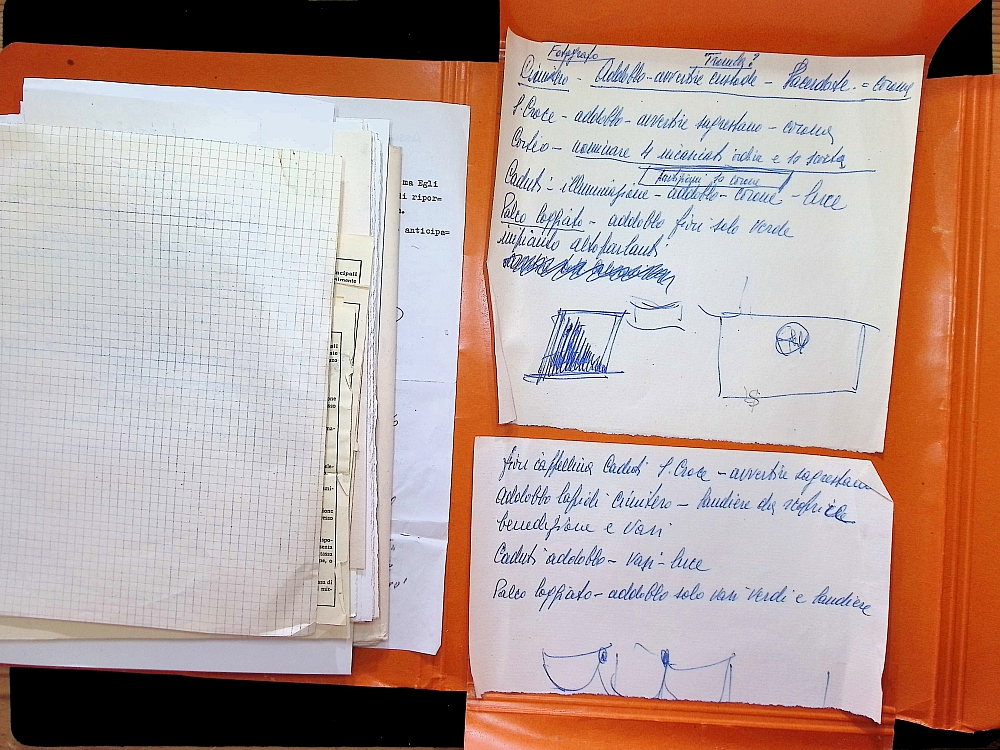 ma Egli
di ripor=
anticipa=
ncipali
Fotografo
Cimitero - Addobbo - avvertire custode - Sacerdote = corona
S. Croce - addobbo - avvertire sagrestano - corona
Corteo - nominare 4 incaricati
Caduti - illuminazione - addobbo - corone - luce
Palco loggiato - addobbo fiori solo verde
impianto altoparlanti
fiori cappellina Caduti S. Croce - avvertire sagrestano
addobbo lapidi cimitero - bandiere da scoprire
benedizione e vasi
Caduti addobbo - vasi - luce
Palco loggiato - addobbo solo vasi verdi e bandiere